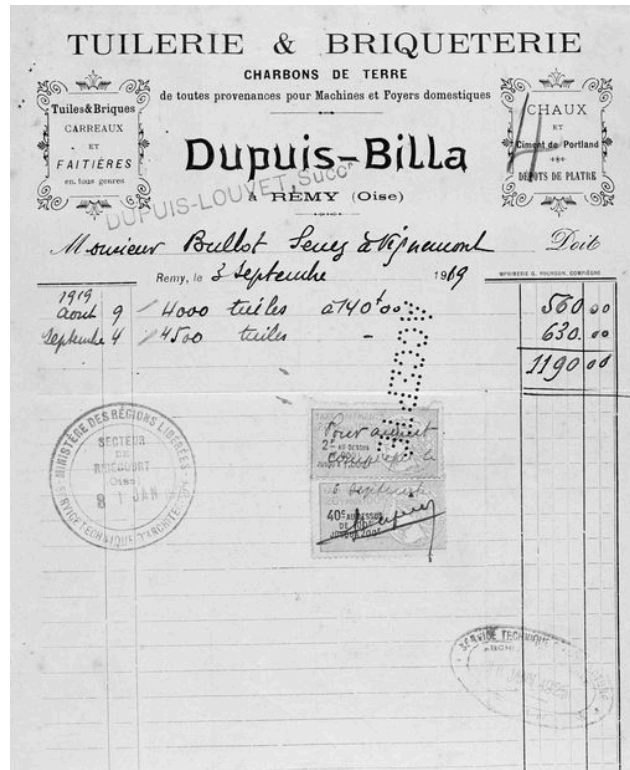 TUILERIE & BRIQUETERIE
CHARBONS DE TERRE
de toutes provenances pour Machines et Foyers domestiques
Tuiles & Briques
CARREAUX
ET
FAITIÈRES
en tous genres
CHAUX
ET
Ciment de Portland
DÉPOTS DE PLATRE
4
Dupuis-Billa
DUPUIS-LOUVET, Succr
à RÉMY (Oise)
Monsieur Bullot Senez à Vignemont Doit
Remy, le 3 Septembre 1919
IMPRIMERIE G. COMPIÈGNE
1919
Aout 9 4000 tuiles à 140f00 560 00
Septembre 4 4500 tuiles - 630. 00
1190 00
MINISTÈRE DES RÉGIONS LIBÉRÉES
SECTEUR
DE
RIBÉCOURT
Oise
8 1 JAN
SERVICE TECHNIQUE D'ARCHITE
Pour acquit
2
JUSQU'A 1.000
6 Septembre
40c AU DESSUS
DE 100f
JUSQU'A 200f
SERVICE TECHNIQUE